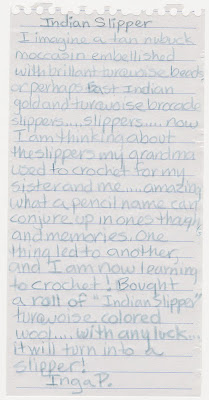 Indian Slipper
I imagine a tan nubuck
moccasin embellished
with brillant turquoise beads
or perhaps East Indian
gold and turquoise brocade
slippers.....slippers.... now
I am thinking about
the slippers my grandma
used to crochet for my
sister and me.....amazing
what a pencil name can
conjure up in ones thoughts
and memories. One
thing led to another,
and I am now learning
to crochet! Bought
a roll of "Indian Slipper"
turquoise colored
wool.... with any luck...
it will turn into a
slipper!
Inga P.